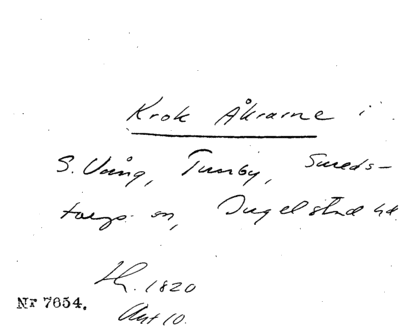 Krok Åkrarne i
S. Vång, Tumby, Smeds-
torps sn, Ingelstad hd.
1820
Akt 10.
Nr 7654.